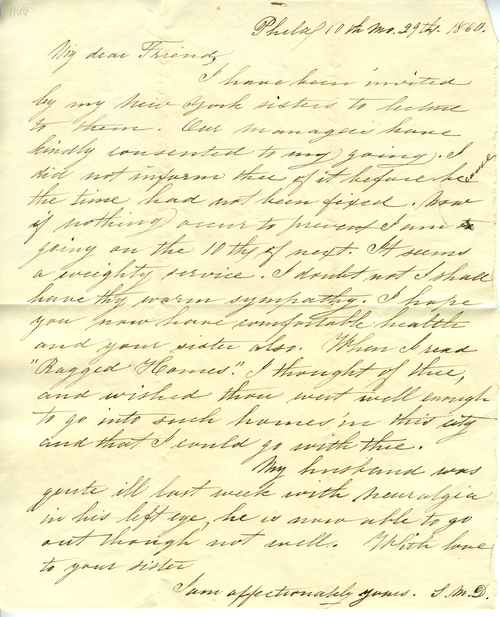 1166
Phila 10th mo. 29th. 1860.
My dear Friend,
I have been invited
by my New York sisters to lecture
to them. Our managers have
kindly consented to my going. I
did not inform thee of it before be
cause
the time had not been fixed. Now
if nothing occur to prevent I am
going on the 10th of next. It seems
a weighty service. I doubt not I shall
have thy warm sympathy. I hope
you now have comfortable health
and your sister also. When I read
"Ragged Homes". I thought of thee,
and wished thou wert well enough
to go into such homes in this city
and that I could go with thee.
My husband was
quite ill last week with neuralgia
in his left eye, he is now able to go
out though not well. With love
to your sister
I am affectionately yours. S. M. D.